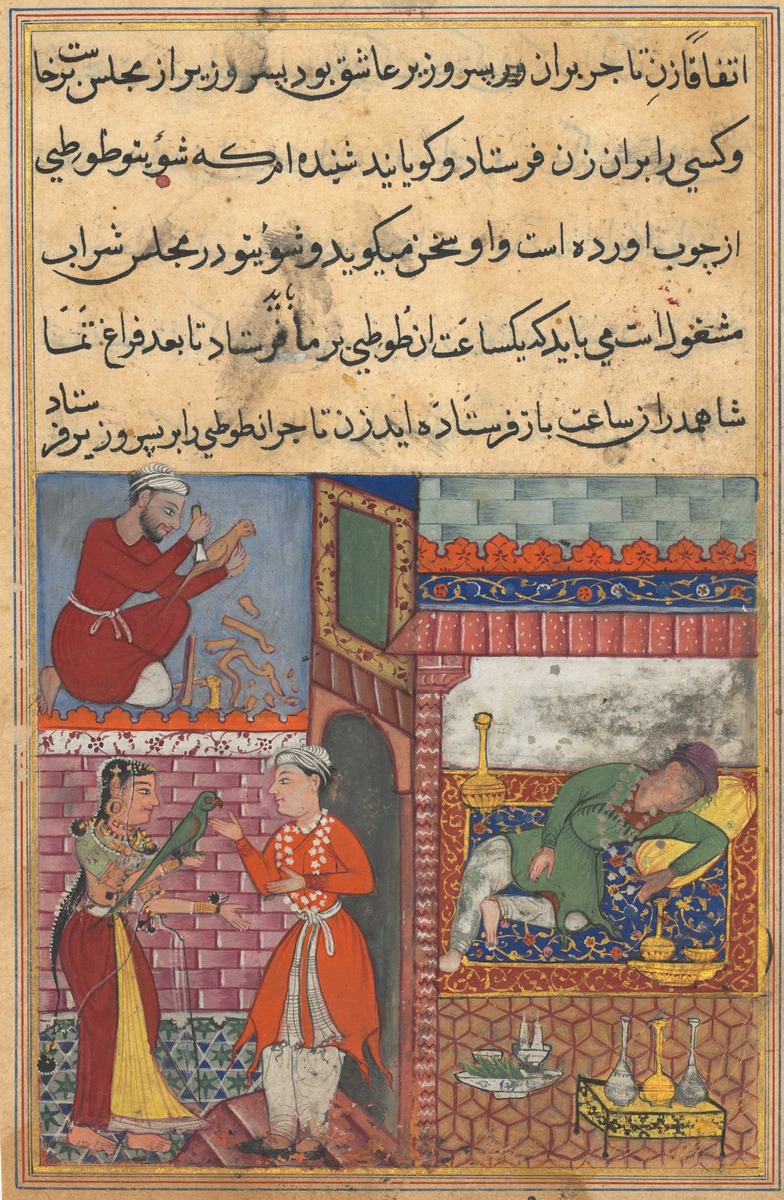 اتفاقاً زنِ تاجر بران پسر وزیر عاشق بود پسر وزیر از مجلس برخاست
و کسی را بران زن فرستاد و کویانید شنیده ام که شوُیتو طوطیی
از چوب اورده است و او سخن میکوید و شوُیتو در مجلس شراب
مشغول است می باید که یکساعَت ان طُوطیی بر ما باید فرستاد تا بعد فراغ تَمَا
شا همدران ساعت باز فرستَادَه اید زن تاجر ان طوطیی را بر پسر وزیر فرستاد